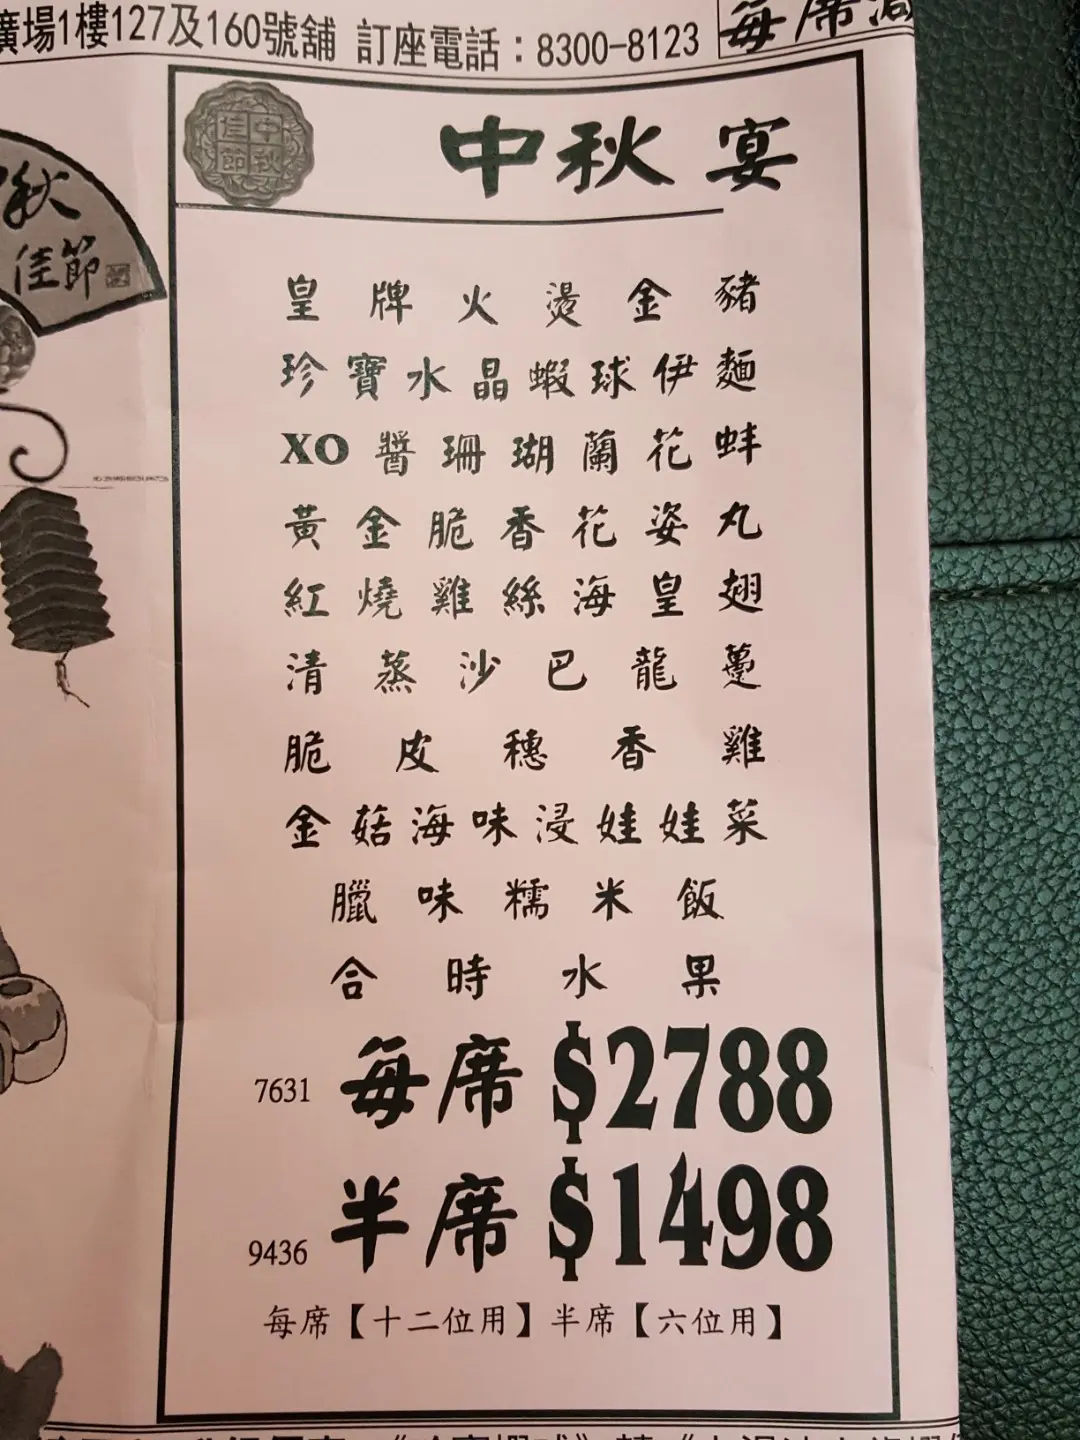 廣場1樓127及160號舖 訂座電話：8300-8123
每席
中秋佳節
中秋宴
秋
佳節
皇牌火燙金豬
珍寶水晶蝦球伊麵
XO醬珊瑚蘭花蚌
黃金脆香花姿丸
紅燒雞絲海皇翅
清蒸沙巴龍躉
脆皮穗香雞
金菇海味浸娃娃菜
臘味糯米飯
合時水果
7631 每席 $2788
9436 半席 $1498
每席【十二位用】半席【六位用】